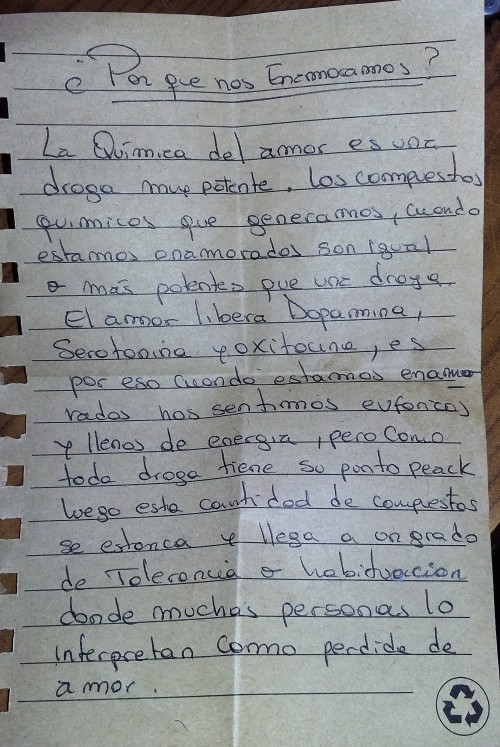 ¿ Por que nos Enamoramos ?
La Quimica del amor es una
droga muy potente. los compuestos
quimicos que generamos, cuando
estamos enamorados son igual
o mas potentes que una droga.
El amor libera Dopamina,
Serotonina y oxitocina, es
por eso cuando estamos enamo
rados nos sentimos euforicos
y llenos de energia, pero Como
toda droga tiene su punto peack
luego esta cantidad de compuestos
se estanca y llega a un grado
de Tolerancia o habituacion
donde muchas personas lo
interpretan Como perdida de
amor.